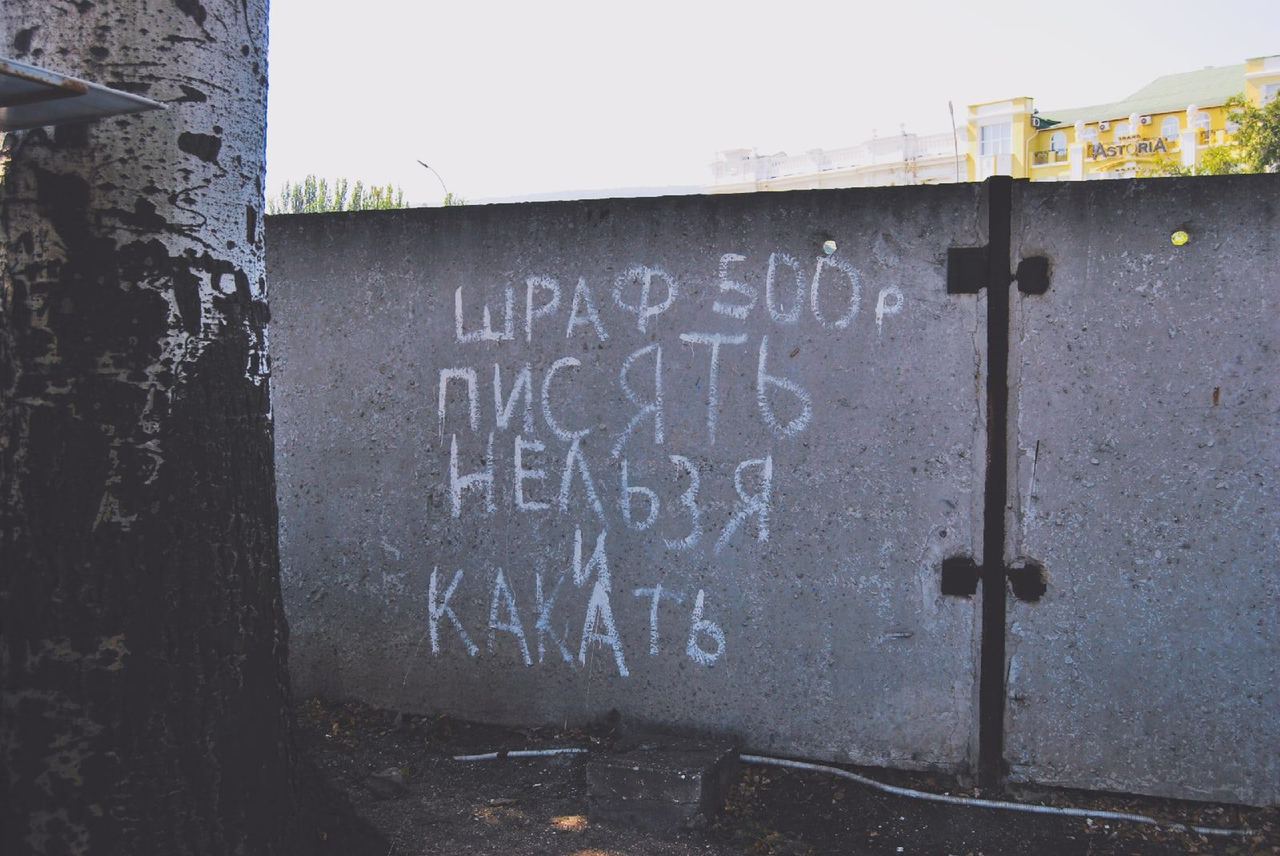 GRAND
ASTORIA
ШРАФ 500р
ПИСЯТЬ
НЕЛЬЗЯ
И
КАКАТЬ